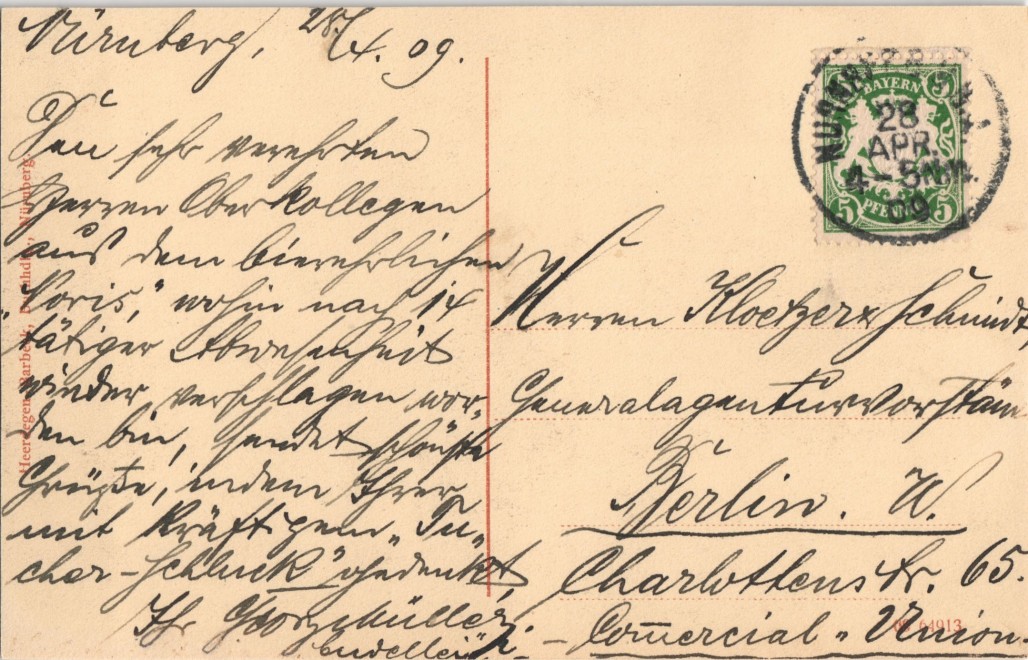 Nürnberg, 28./4. 09.
Den sehr verehrten
Herren Oberkollegen
aus dem bierehrlichen
"Noris," wohin nach 14
tätiger Abwesenheit
wieder verschlagen wor-
den bin, sendet schönste
Grüße, indem Ihrer
mit kräftigem "Tu-
cher-Schluck" gedenkt,
Ihr Georg Müller
Heerdegen-Barbeck, Nürnberg
BAYERN
5
5 PFENNIG 5
NÜRNBERG
28
APR.
4-5 Nm.
09
Herren Kloetzer & Schmidt,
Generalagenturvorstän
Berlin. W.
Charlottenstr. 65.
Com̅ercial "Union
64913